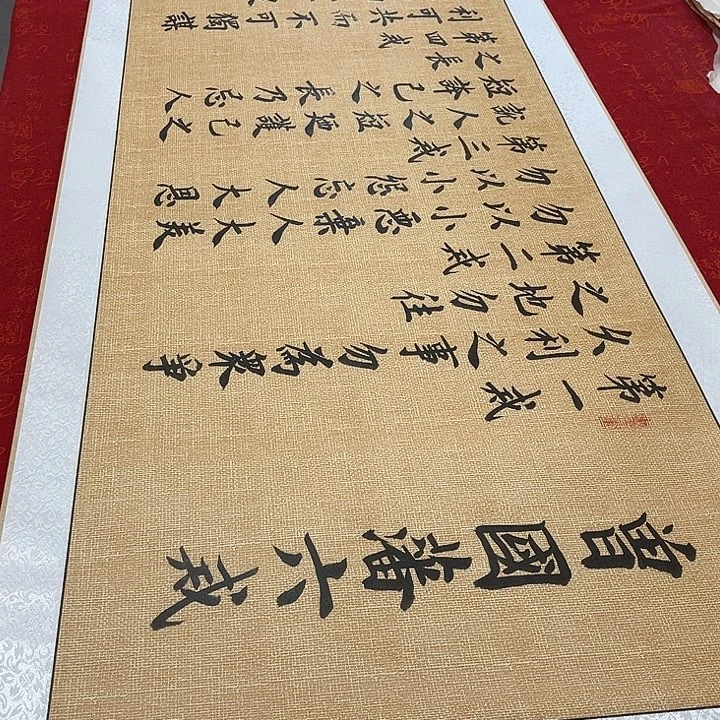 曾國藩六戒
第一戒
久利之事勿為眾爭
之地勿往
第二戒
勿以小惡棄人大美
勿以小怨忘人大恩
第三戒
說人之短廼護己之
短夸己之長乃忌人
之長
第四戒
利可共而不可獨謀